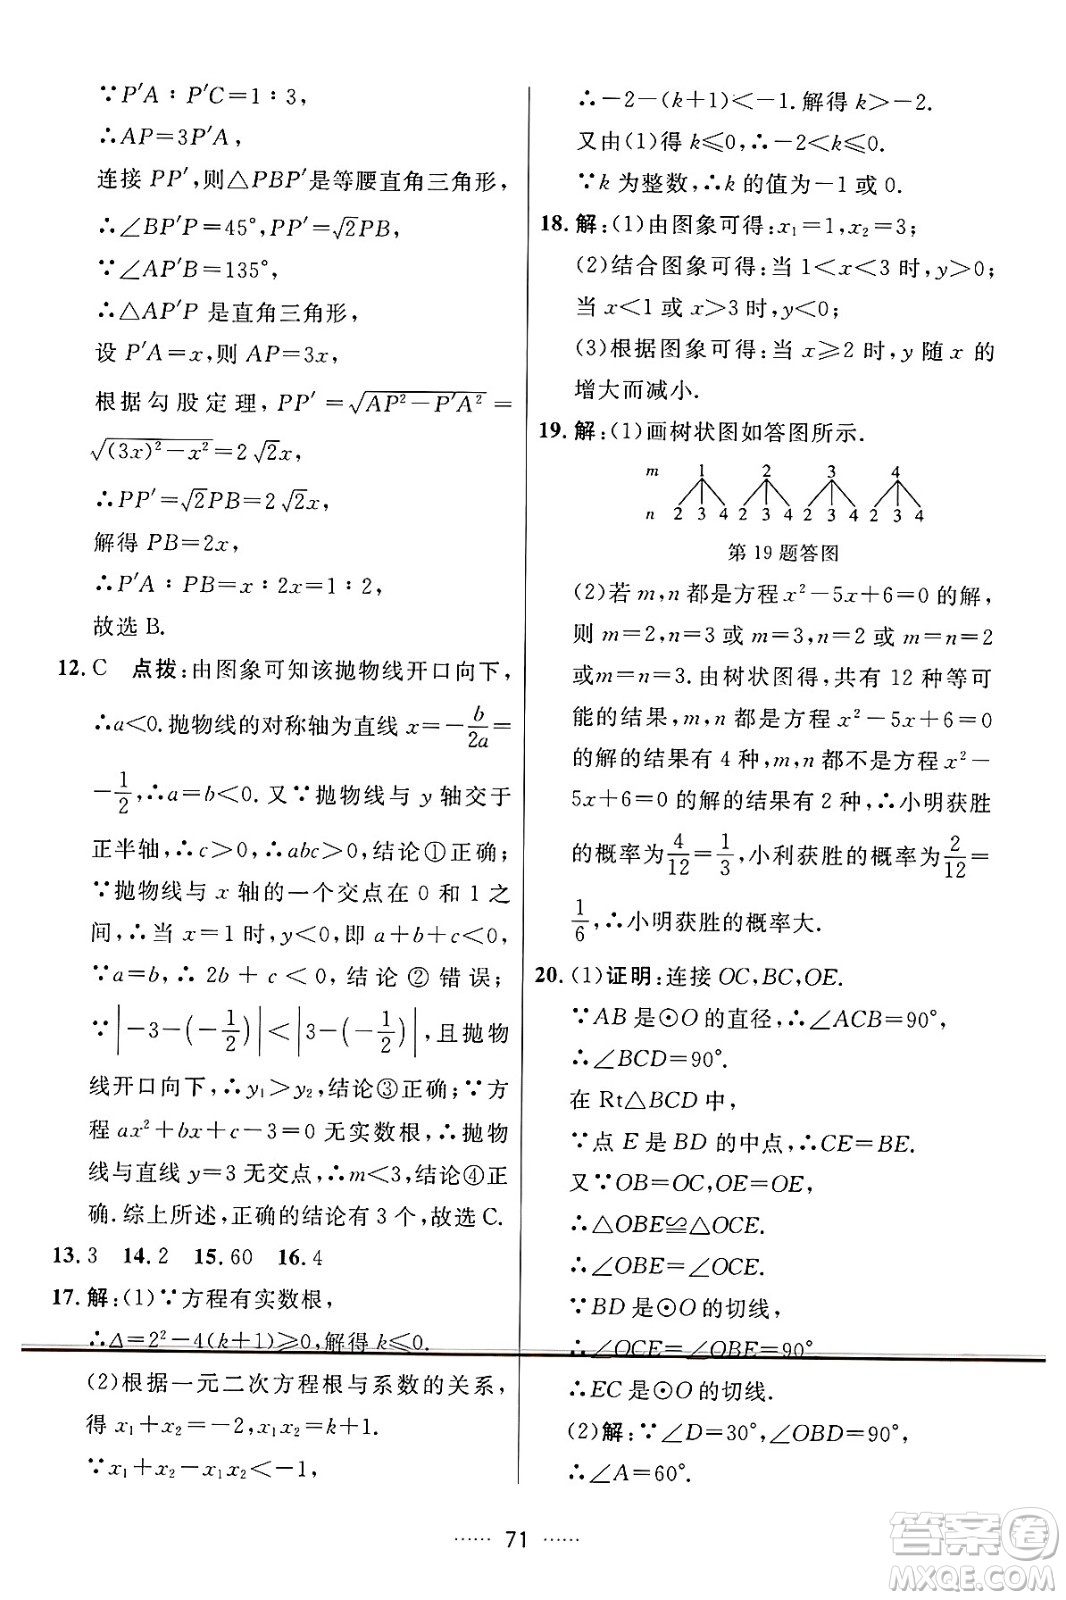 ∵P′A∶P′C=1∶3,
∴AP=3P′A,
连接 PP′,则△PBP′是等腰直角三角形,
∴∠BP′P=45°,PP′=√2PB,
∵∠AP′B=135°,
∴△AP′P 是直角三角形,
设 P′A=x,则 AP=3x,
根据勾股定理,PP′=√(AP²−P′A²)=
√((3x)²−x²)=2√2x,
∴PP′=√2PB=2√2x,
解得 PB=2x,
∴P′A∶PB=x∶2x=1∶2,
故选 B.
12. C 点拨:由图象可知该抛物线开口向下,
∴a<0.抛物线的对称轴为直线 x=−b/2a=
−1/2,∴a=b<0.又∵抛物线与 y 轴交于
正半轴,∴c>0,∴abc>0,结论①正确;
∵抛物线与 x 轴的一个交点在 0 和 1 之
间,∴当 x=1 时,y<0,即 a+b+c<0,
∵a=b,∴2b+c<0,结论②错误;
∵|−3−(−1/2)|<|3−(−1/2)|,且抛物
线开口向下,∴y₁>y₂,结论③正确;∵方
程 ax²+bx+c−3=0 无实数根,∴抛物
线与直线 y=3 无交点,∴m<3,结论④正
确.综上所述,正确的结论有 3 个,故选 C.
13. 3 14. 2 15. 60 16. 4
17. 解:(1)∵方程有实数根,
∴Δ=2²−4(k+1)⩾0,解得 k⩽0.
(2)根据一元二次方程根与系数的关系,
得 x₁+x₂=−2,x₁x₂=k+1.
∵x₁+x₂−x₁x₂<−1,
∴−2−(k+1)<−1.解得 k>−2.
又由(1)得 k⩽0,∴−2<k⩽0.
∵k 为整数,∴k 的值为−1 或 0.
18. 解:(1)由图象可得:x₁=1,x₂=3;
(2)结合图象可得:当 1<x<3 时,y>0;
当 x<1 或 x>3 时,y<0;
(3)根据图象可得:当 x⩾2 时,y 随 x 的
增大而减小.
19. 解:(1)画树状图如答图所示.
m 1 2 3 4
n 2 3 4 2 3 4 2 3 4 2 3 4
第 19 题答图
(2)若 m,n 都是方程 x²−5x+6=0 的解,
则 m=2,n=3 或 m=3,n=2 或 m=n=2
或m=n=3.由树状图得,共有 12 种等可
能的结果,m,n 都是方程 x²−5x+6=0
的解的结果有 4 种,m,n 都不是方程 x²−
5x+6=0 的解的结果有 2 种,∴小明获胜
的概率为4/12=1/3,小利获胜的概率为2/12=
1/6,∴小明获胜的概率大.
20. (1)证明:连接 OC,BC,OE.
∵AB 是⊙O 的直径,∴∠ACB=90°,
∴∠BCD=90°.
在 Rt△BCD 中,
∵点 E 是 BD 的中点,∴CE=BE.
又∵OB=OC,OE=OE,
∴△OBE≌△OCE.
∴∠OBE=∠OCE.
∵BD 是⊙O 的切线,
∴∠OCE=∠OBE=90°
∴EC 是⊙O 的切线.
(2)解:∵∠D=30°,∠OBD=90°,
∴∠A=60°.
71
答案圈
MXQE.COM